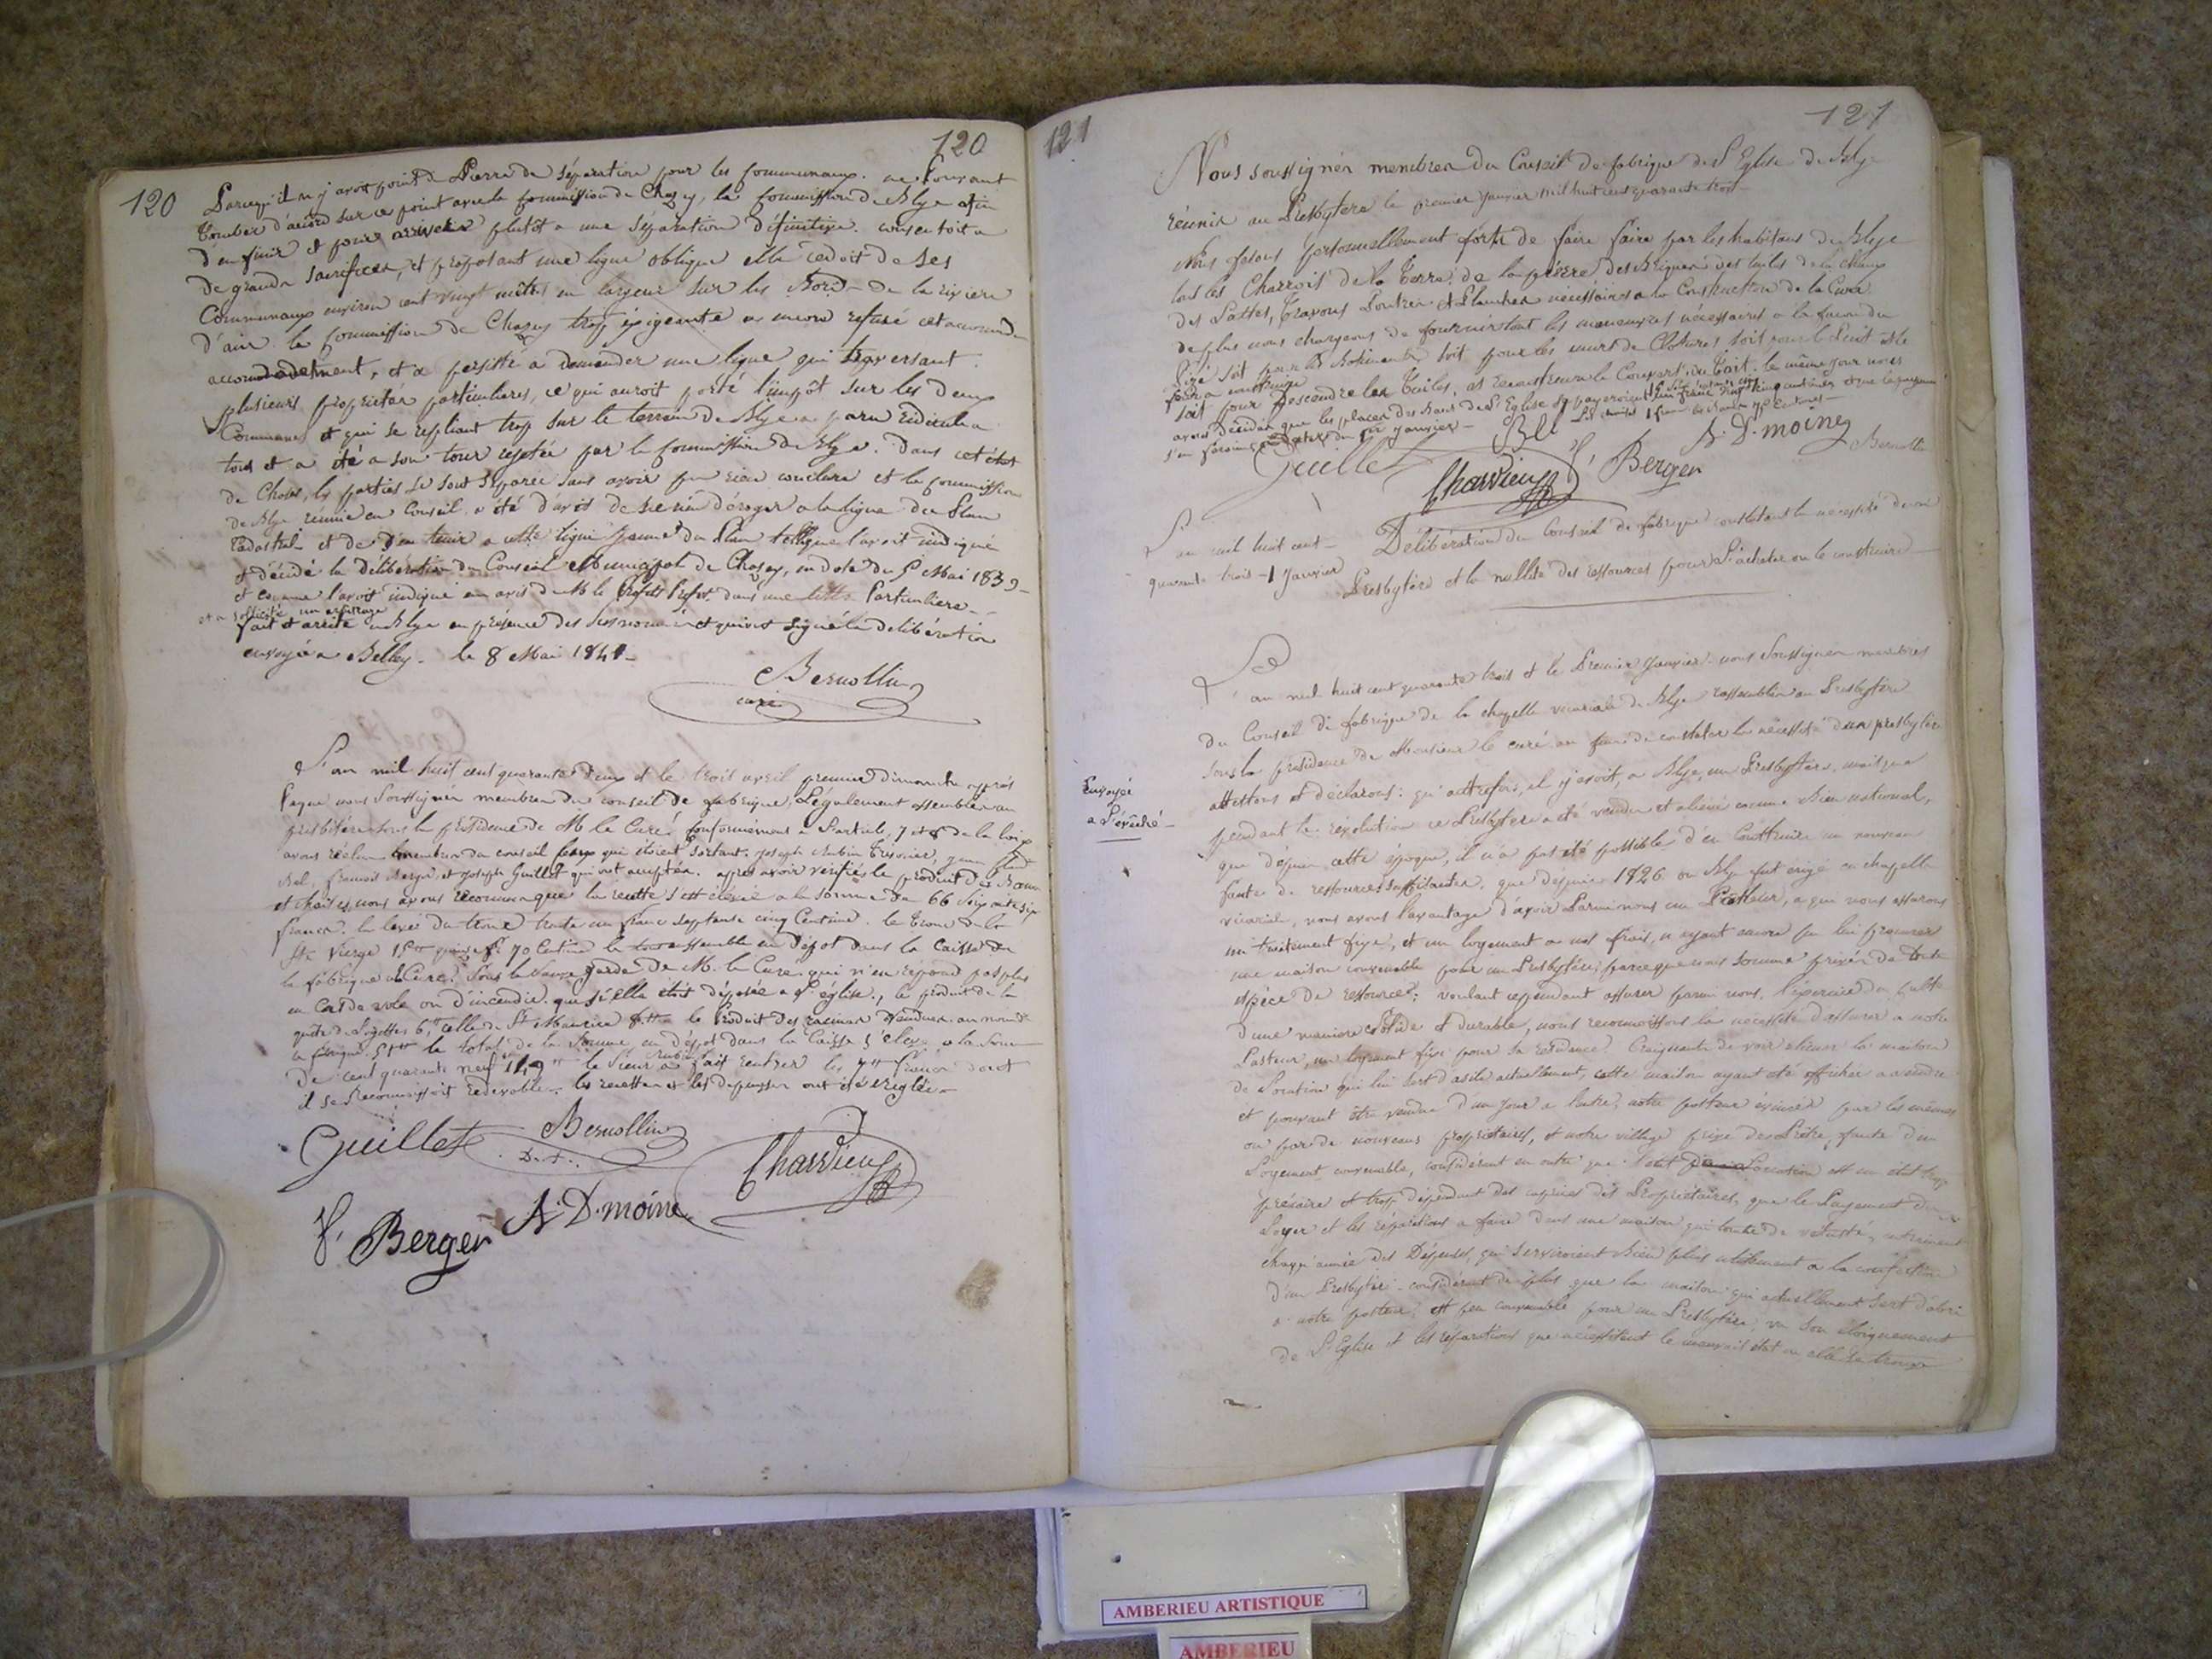 120
120
Parcequ'il n'y avoit point de Pierre de séparation pour les communaux. ne pouvant
tomber d'accord sur ce point avec la commission de Chazey, la commission de Blye afin
d'en finir et pour arriver plutôt a une séparation définitive. consentoit a
de grands sacrifices, et proposant une ligne oblique elle cedoit de ses
Communaux environ cent vingt mètres en largeur sur les Bords de la rivière
d'ain. la commission de Chazey trop exigeante a encore refusé cet accomod-
accomodement, et a persisté a demander une ligne qui traversant
plusieurs propriétés particulieres, ce qui auroit porté l'impôt sur les deux
Communes et qui se repliant trop sur le terrain de Blye a paru ridicule a
tous et a été a son tour rejetée par la commission de Blye. Dans cet état
de Choses, les parties se sont séparées sans avoir pu rien conclure et la commission
de Blye réunie en Conseil a été d'avis de ne rien déroger a la ligne du Plan
Cadastral et de s'en tenir a cette ligne jaune du Plan telle que l'avoit indiqué
et décidé la délibération du Conseil Municipal de Chazey, en date du 5 Mai 1839
et comme l'avoit indiqué un avis de M le Préfet dans une lettre Particuliere
et a sollicité un arbitrage
fait et arrêté a Blye en présence des susnommés et qui ont signé la délibération
envoyée a Belley. le 8 Mai 1841
Bernollin
curé
L'an mil huit cent quarante deux et le trois avril premier dimanche après
Paque nous Soussignés membres du conseil de fabrique, Légalement assemblés au
presbitère sous la présidence de M le Curé conformément a l'article 7 et 8 de la loi
avons réélu membres du conseil ceux qui étoient sortant. Joseph Aubin Trésorier,
Bel, françois Berger, et Joseph Guillet qui ont accepté. après avoir vérifié le produit des Bancs
et chaises, nous avons reconnu que la recette s'est élevée a la somme de 66 soixante six
francs. la levée du tronc trente un franc septante cinq Centime. le tronc de la
Ste Vierge 15 quinze fr 70 Centime le tout ensemble en dépot dans la Caisse de
la fabrique a la Cure. sous la sauve garde de M. le Curé qui n'en répond pas plus
en cas de vole ou d'incendie que si elle étoit déposée a l'église, le produit de la
quête de 6, celle de St Maurice le produit des racines vendues au nom de
la fabrique le total de la Somme en dépot dans la Caisse s'élève a la Somme
De cent quarante neuf 149 le Sieur Aubin a fait rentrer les francs dont
il se reconnissoit redevable. les recettes et les dépenses ont été réglées
Guillet Bernollin
D.t. Charvieux
f. Berger A. D. moine
121
121
Nous soussignés membres du Conseil de fabrique de l'Eglise de Blye
réunis au Presbytere le premier Janvier mil huit cent quarante trois
Nous fesons personnellement forts de faire faire par les habitans de Blye
tous les Charrois de la terre, de la pierre des Briques des tuiles de la chaux
des Lattes, travons Poutres et Planches nécessaires a la Construction de la Cure
de plus nous chargeons de fournir tout les manœuvres nécessaires a la façon du
Pisé soit pour les Batiments soit pour les murs de Clotures soit pour le Puit et le
four a construire
soit pour Descendre les Tuiles, et reconstruire le Couvert du toit. le même jour nous
avons décidé que les places des bancs de l'Eglise se payeroient un franc
Les chaises 1 franc
s'en feroient a Dater du 1er Janvier
Bel A. D. moine
Guillet Bernollin
Charvieux f. Berger
L'an mil huit cent
quarante trois 1 Janvier
Délibération du Conseil de fabrique constatant la nécessité d'un
Presbytère et la nullité des ressources pour l'acheter ou le construire
L'an mil huit cent quarante trois et le Premier Janvier nous Soussignés membres
du Conseil de fabrique de la chapelle vicariale de Blye rassemblés au Presbytère
sous la présidence de Monsieur le curé au fins de constater la nécessité d'un presbytère
attestons et déclarons: qu'autrefois, il y avoit, a Blye, un Presbytère. mais que
Envoyée
a l'évêché
pendant la révolution ce Presbytère a été vendu et aliéné comme Bien national,
que depuis cette époque, il n'a pas été possible d'en Construire un nouveau
faute de ressources suffisantes. que depuis 1826 ou Blye fut érigé en chapelle
vicariale, nous avons l'avantage d'avoir Parmi nous un Pasteur, a qui nous assurons
un traitement fixe, et un logement a nos frais, n'ayant encore pu lui procurer
une maison convenable pour un Presbytère, parceque nous somme privés de toute
espèce de ressources; voulant cependant assurer parmi nous, l'exercice du Culte
d'une maniere solide et durable, nous reconnoissons la nécessité d'assurer a notre
Pasteur, un logement fixe pour sa résidence. Craignants de voir aliener la maison
de Location qui lui sert d'asile actuellement, cette maison ayant été affichée a vendre
et pouvant être vendue d'un jour a l'autre, notre pasteur évincé par les mêmes
ou par de nouveaux propriétaires, et notre village privé de Prêtre, faute d'un
Logement convenable, considérant en outre que l'état de Location est un état trop
précaire et trop dépendant des caprices des Propriétaires, que le Payement du
Loyer et les réparations a faire dans une maison qui tombe de vétusté, entrainent
chaque année des Dépenses, qui serviroient Bien plus utilement a la confection
d'un Presbytère. considérant de plus que la maison qui actuellement sert d'abri
a notre pasteur, est peu convenable pour un Presbytère, vu son éloignement
de l'Eglise et les réparations que nécessitent le mauvais état ou elle se trouve
AMBERIEU ARTISTIQUE
AMBERIEU